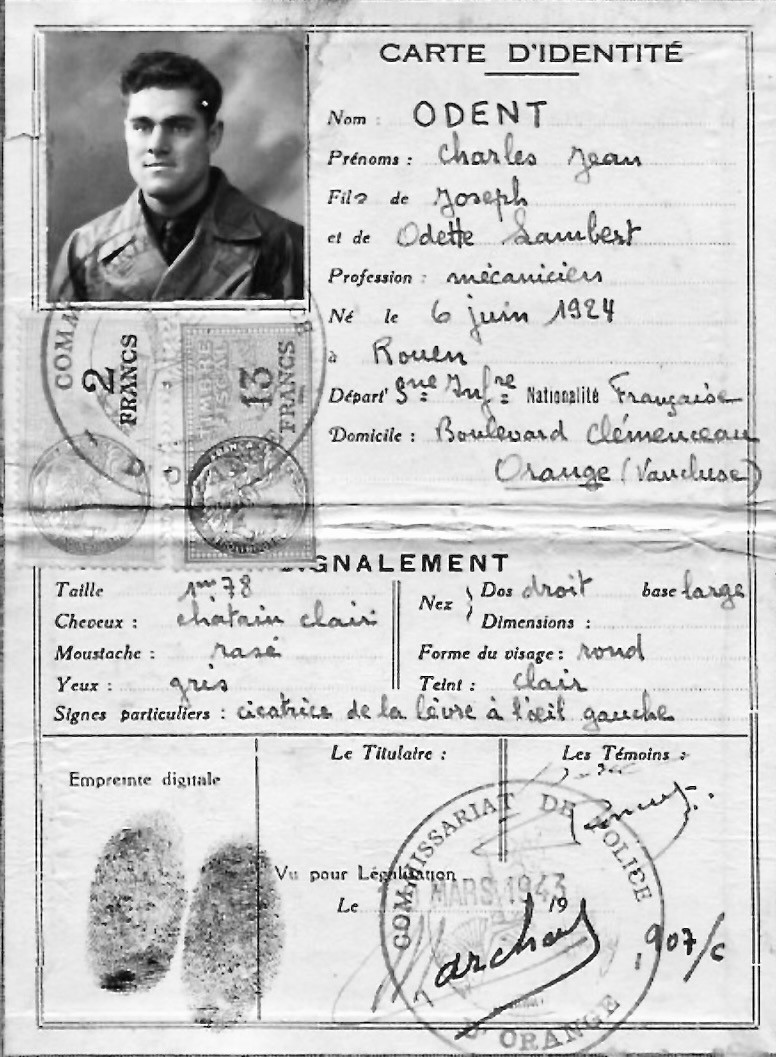 CARTE D'IDENTITÉ
Nom : ODENT
Prénoms : Charles Jean
Fils de Joseph
et de Odette Lambert
Profession : mécanicien
Né le 6 juin 1924
à Rouen
Départ' Sne Infre Nationalité Française
Domicile : Boulevard Clémenceau
Orange (Vaucluse)
COMM
2 FRANCS
TIMBRE FISCAL
13 FRANCS
SIGNALEMENT
Taille 1m78
Cheveux : chatain clair
Moustache : rasé
Yeux : gris
Nez Dos droit base large
Dimensions :
Forme du visage : rond
Teint : clair
Signes particuliers : cicatrice de la lèvre à l'œil gauche
Empreinte digitale
Le Titulaire :
Les Témoins :
Vu pour Légalisation
Le MARS 1943 19
COMMISSARIAT DE POLICE
D'ORANGE
907/c